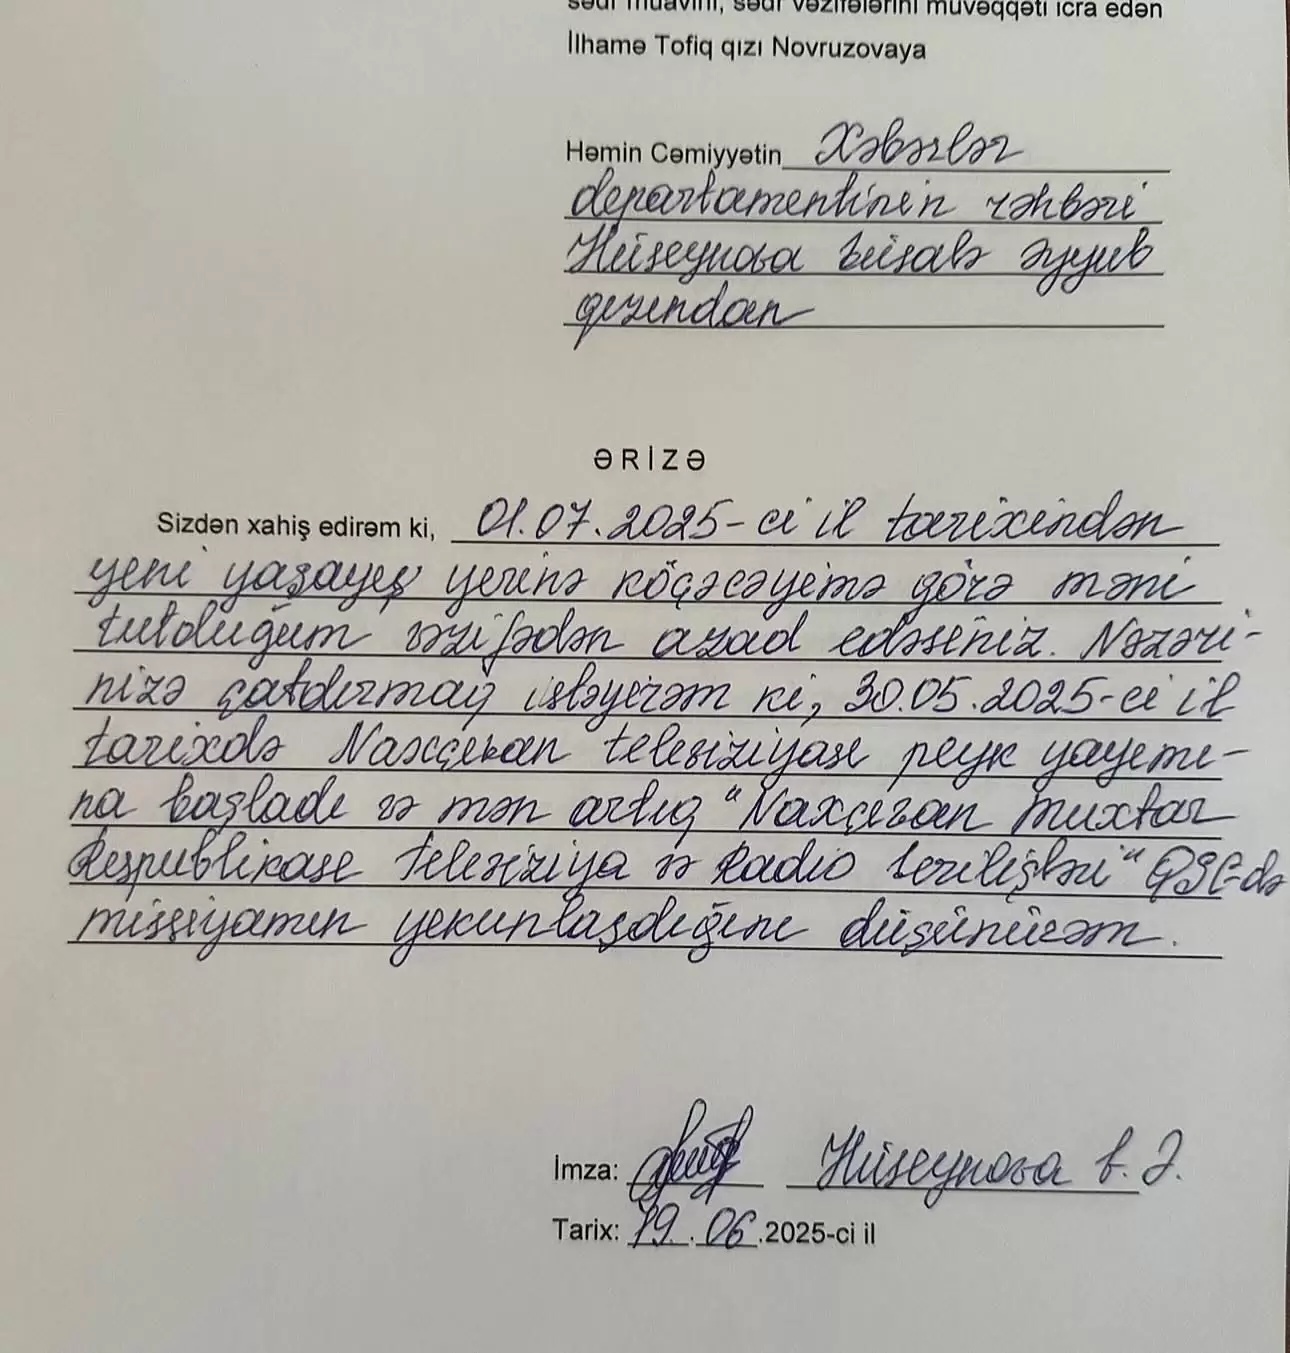 sədr müavini, sədr vəzifələrini müvəqqəti icra edən
İlhamə Tofiq qızı Novruzovaya
Həmin Cəmiyyətin Xəbərlər
departamentinin rəhbəri
Hüseynova Əyyub
qızından
ƏRİZƏ
Sizdən xahiş edirəm ki, 01.07.2025-ci il tarixindən
yeni yaşayış yerinə köçəcəyimə görə məni
tutduğum vəzifədən azad edəsiniz. Nəzəri-
nizə çatdırmaq istəyirəm ki, 30.05.2025-ci il
tarixdə Naxçıvan televiziyası peyk yayımı-
na başladı və mən artıq "Naxçıvan Muxtar
Respublikası Televiziya və Radio Verilişləri" QSC-də
missiyamın yekunlaşdığını düşünürəm.
İmza: Hüseynova V. Ə.
Tarix: 19.06.2025-ci il